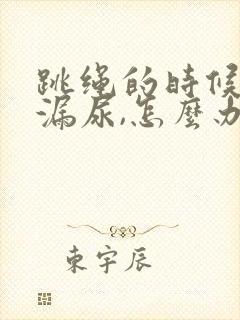 跳绳的時候
漏尿,怎麽办
東宇辰